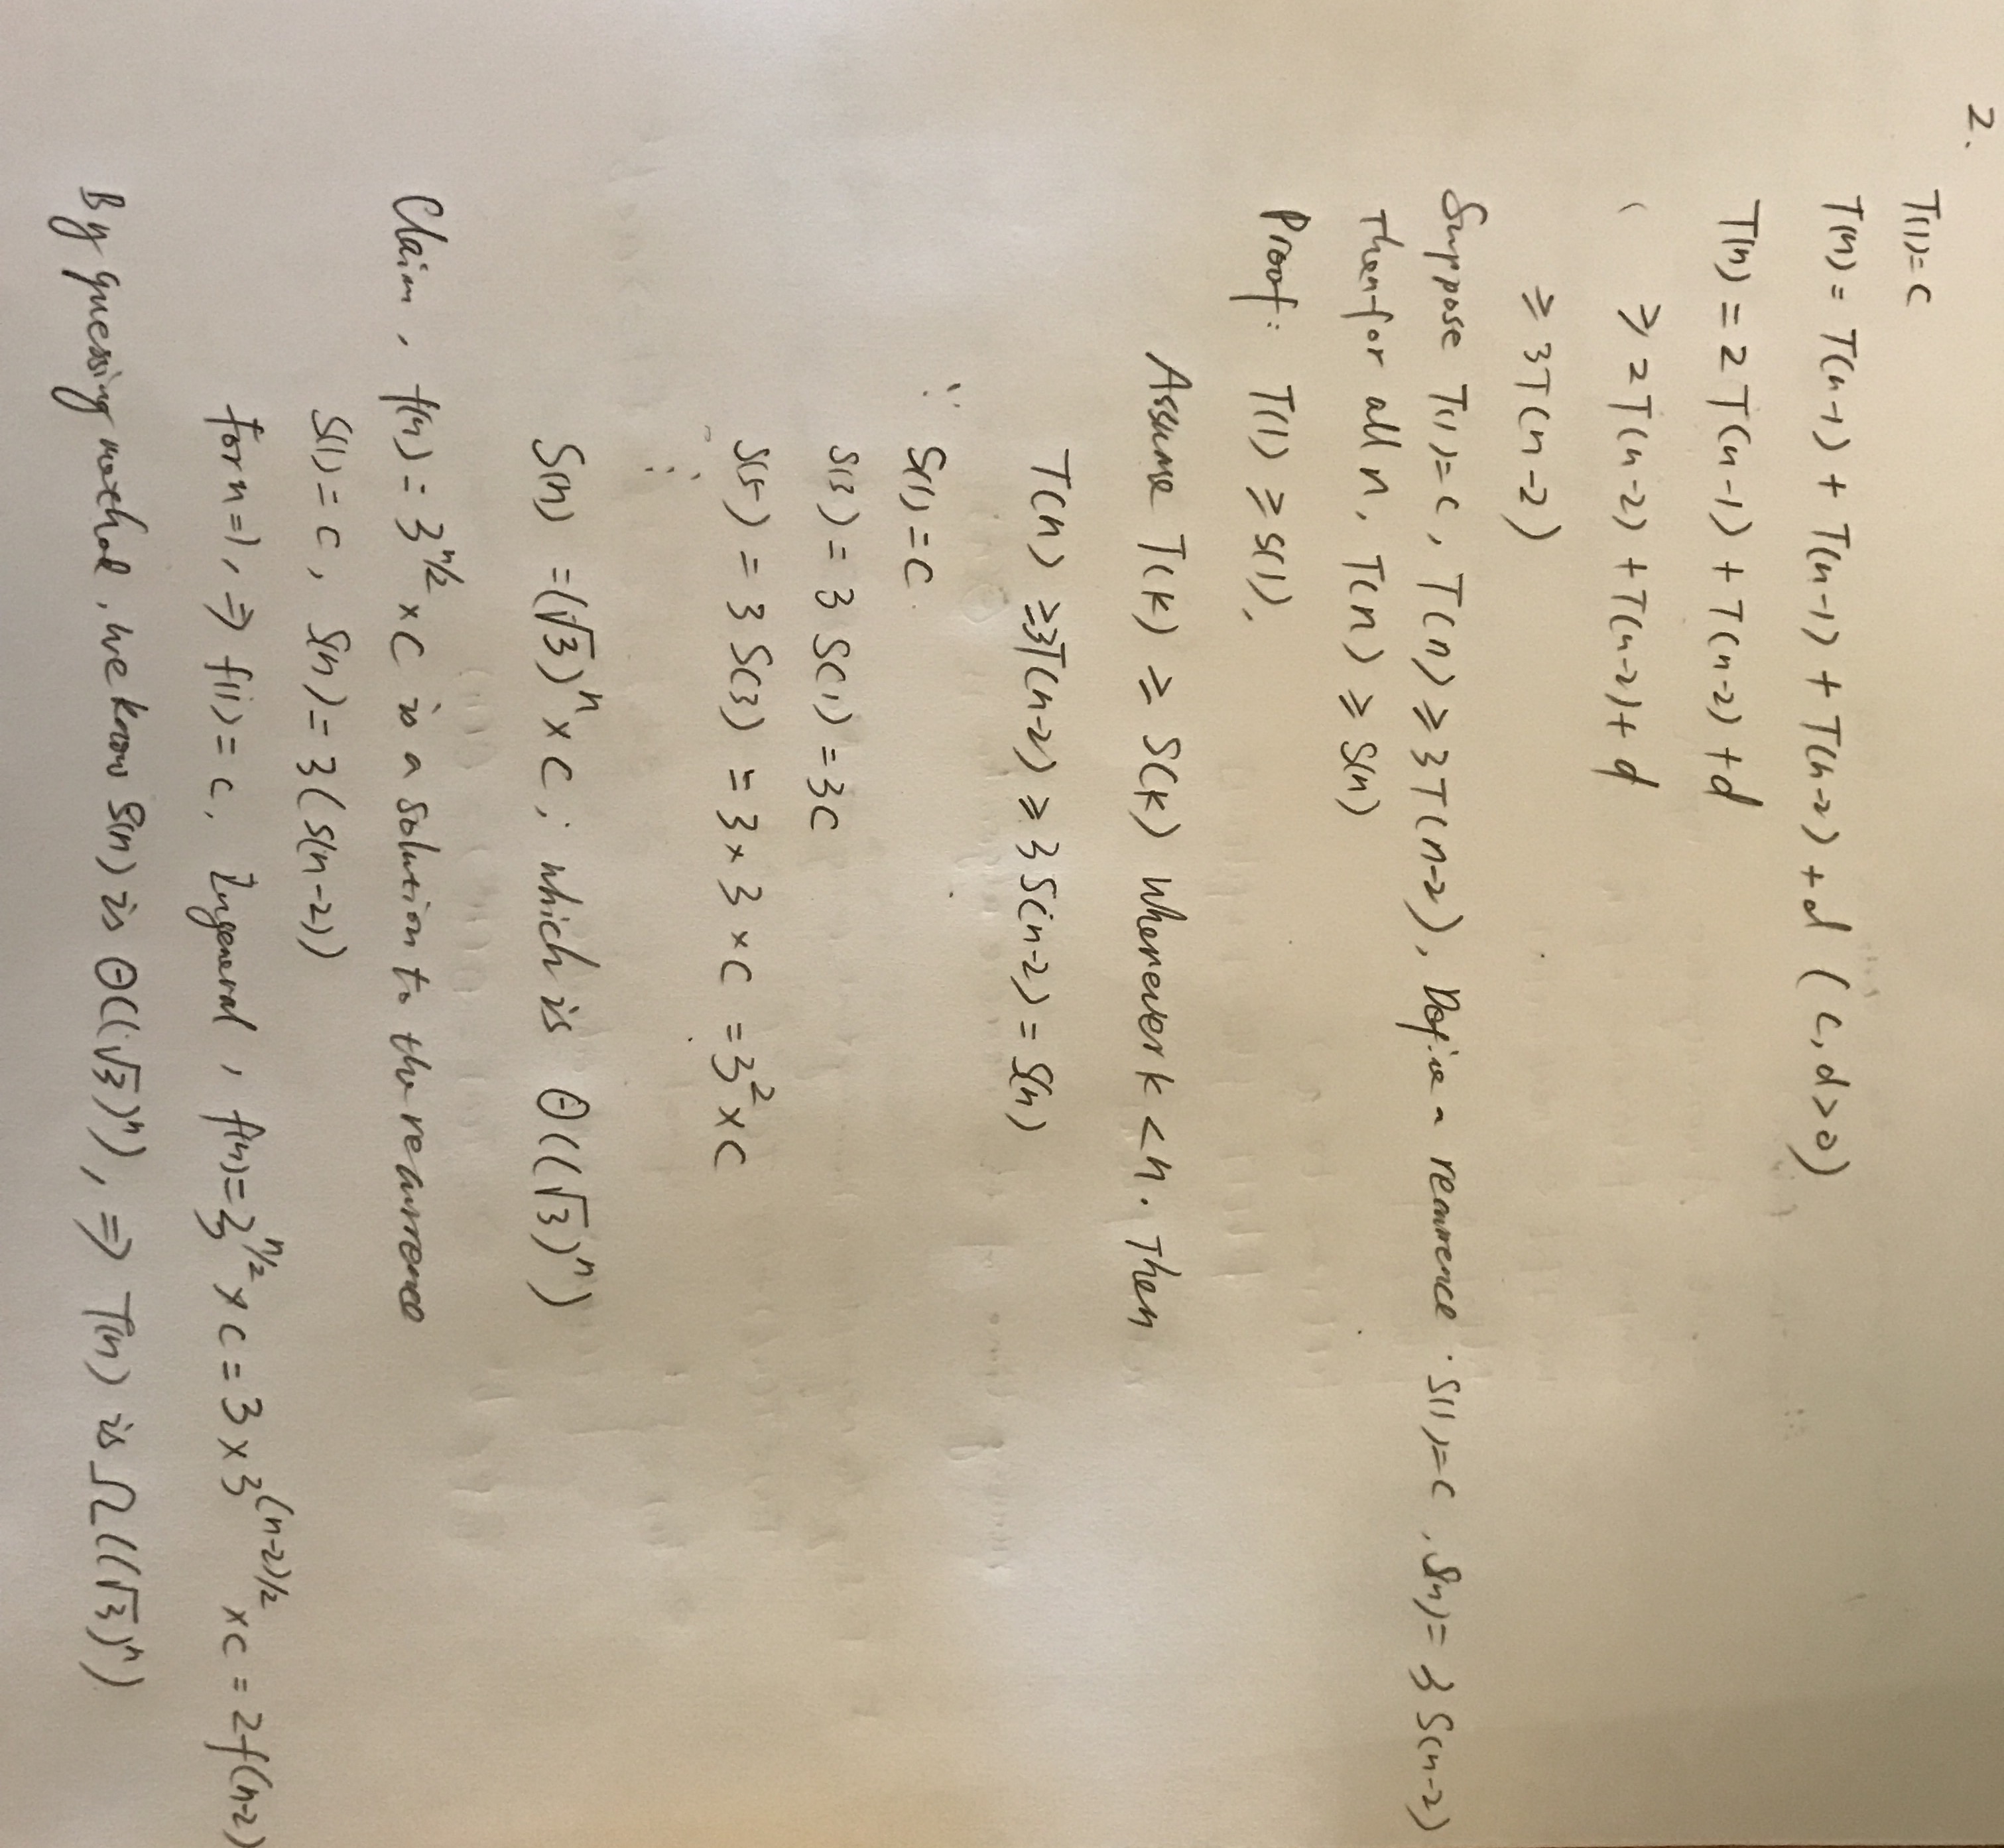 2.
T(1)=c
T(n) = T(n-1) + T(n-1) + T(n-2) + d (c,d>0)
T(n) = 2T(n-1) + T(n-2) + d
≥ 2T(n-2) + T(n-2) + d
≥ 3T(n-2)
Suppose T(1)=c, T(n) ≥ 3T(n-2), Define a recurrence. S(1)=c, S(n)= 3S(n-2)
Then for all n, T(n) ≥ S(n)
Proof: T(1) ≥ S(1),
Assume T(k) ≥ S(k) whenever k<n. Then
T(n) ≥3T(n-2) ≥ 3S(n-2) = S(n)
∵ S(1)=c
S(3) = 3S(1) =3c
S(5) = 3S(3) = 3×3×c =3²×c
S(n) =(√3)ⁿ×c, which is θ((√3)ⁿ)
Claim, f(n) = 3^{n/2} ×c is a solution to the recurrence
S(1)=c, S(n)=3(S(n-2))
for n=1, ⇒ f(1)=c, In general, f(n)=3^{n/2} ×c = 3×3^{(n-2)/2} ×c = 2f(n-2)
By guessing method, we know S(n) is θ((√3)ⁿ), ⇒ T(n) is Ω((√3)ⁿ)